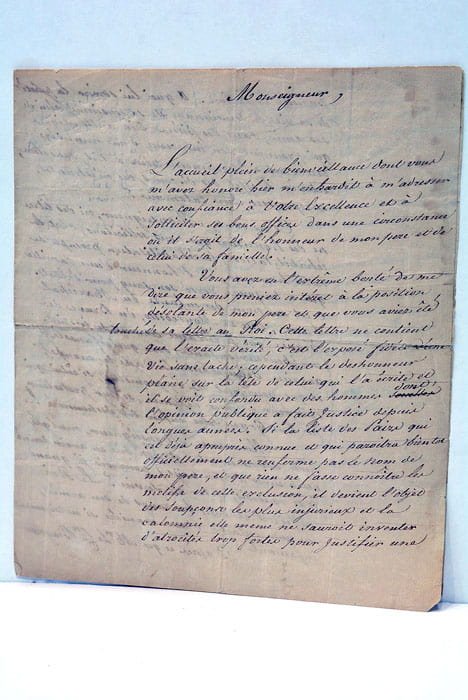 Monseigneur,
L'accueil plein de bienveillance dont vous
m'avez honoré hier m'enhardit à m'adresser
avec confiance à Votre Excellence et à
solliciter ses bons offices dans une circonstance
où il s'agit de l'honneur de mon pere et de
celui de sa famille.
Vous avez eu l'extrême bonté de me
dire que vous preniez intéret à la position
désolante de mon pere et que vous aviez été
touché de sa lettre au Roi. Cette lettre ne contient
que l'exacte vérité, c'est l'exposé fidèle d'une
vie sans tache; cependant le deshonneur
plane sur la tête de celui qui l'a écrite et
il se voit confondu avec des hommes dont
l'opinion publique a fait justice depuis
longues années. Si la liste des Pairs qui
est déjà apeuprès connue et qui paroitra bientot
officiellement ne renferme pas le nom de
mon pere, et que rien ne fasse connoître les
motifs de cette exclusion, il devient l'objet
des soupçons les plus injurieux et la
calomnie elle meme ne sauroit inventer
d'atrocités trop fortes pour justifier une